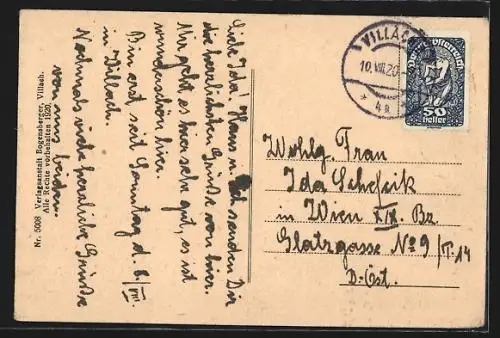 Liebe Ida! Hans u. ich senden Dir
die herzlichsten Grüße von hier.
Mir geht es hier sehr gut, es ist
wunderschön hier.
Bin erst seit Sonntag d. 8/VIII.
in Villach.
Nochmals viele herzliche Grüße
von uns beiden.
Nr. 5008 Verlagsanstalt Bogensberger, Villach.
Alle Rechte vorbehalten 1920.
VILLACH
10.VIII.20
* 4a
Deutschösterreich
50
heller
Wohlg. Frau
Ida
in Wien XIX. Bz.
Glatzgasse No 9/T. 14
D.-Öst.